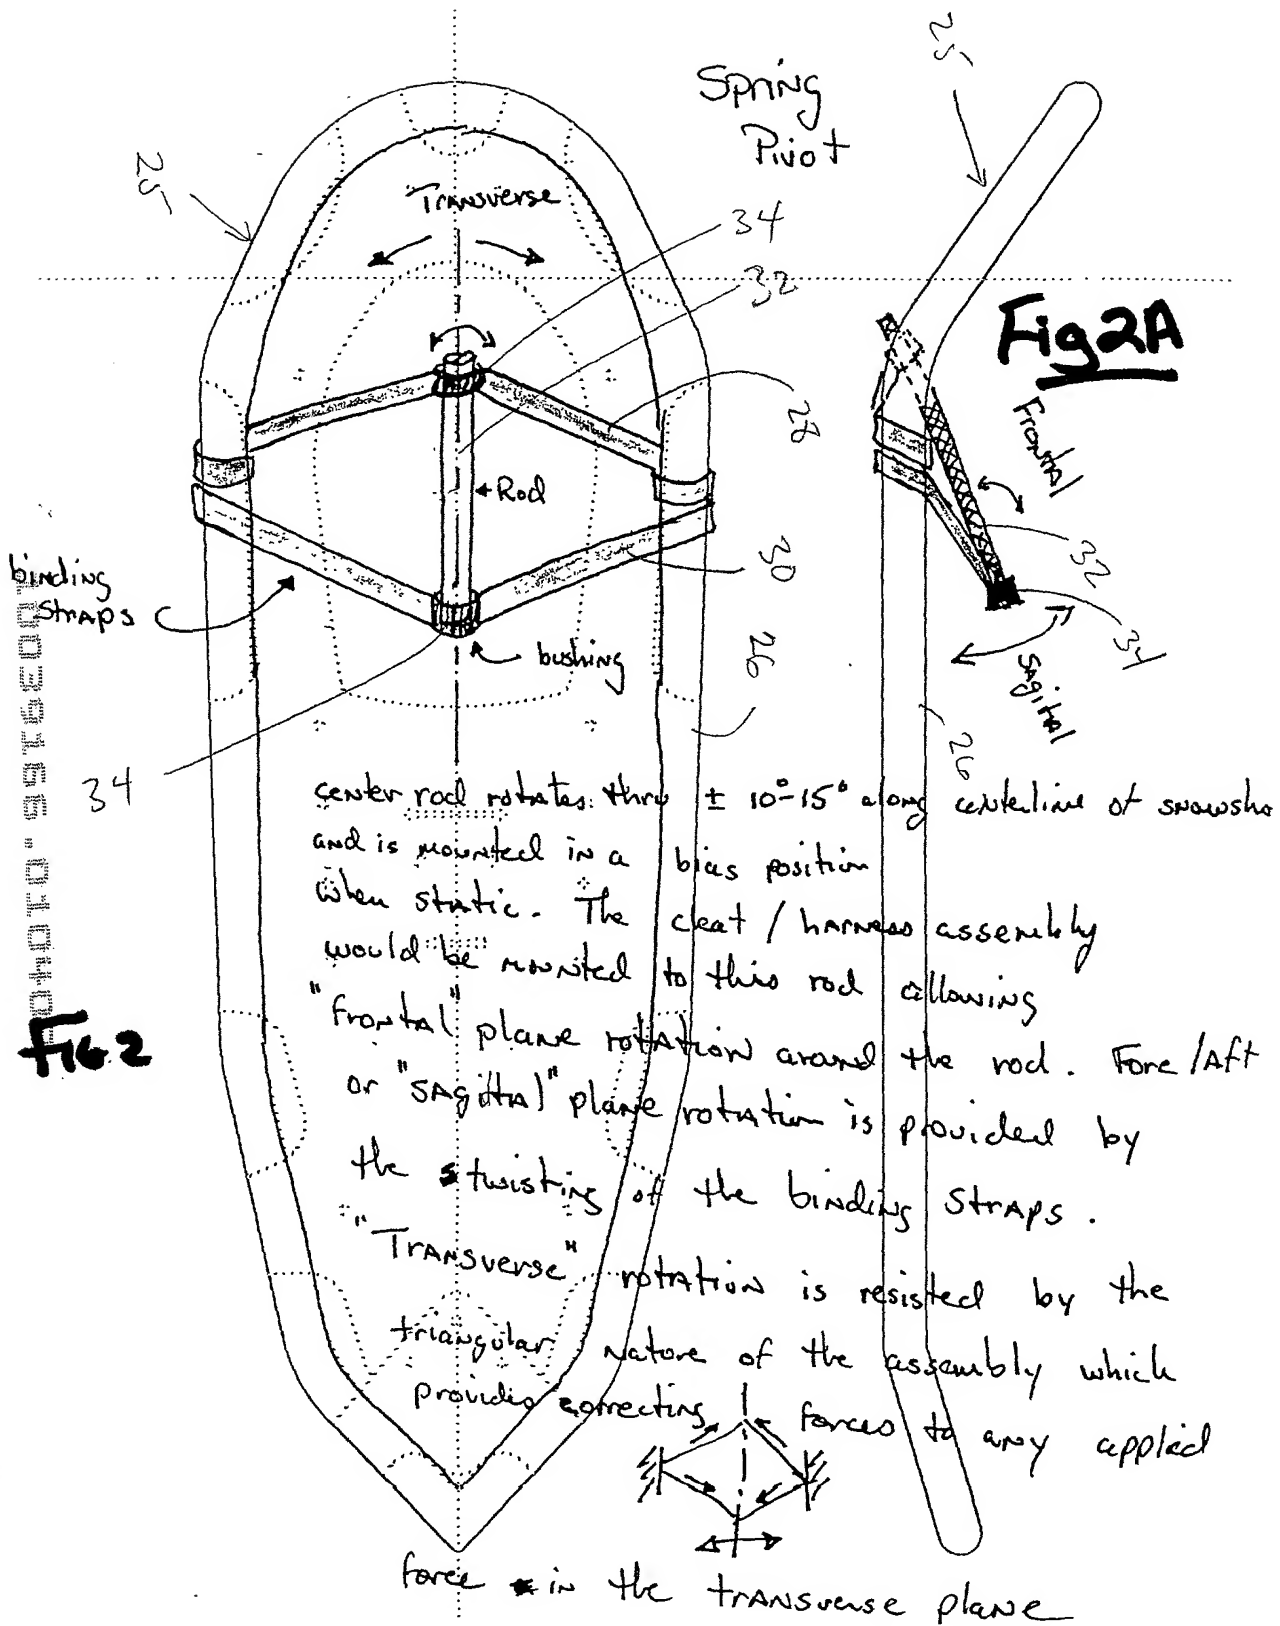 Spring
Pivot
25
25
"Transverse"
34
32
Fig 2A
Frontal
28
Rod
30
32
34
binding
straps
bushing
26
Sagital
26
34
10039166.010402
Fig 2
center rod rotates thru ± 10°-15° along centerline of snowsho
and is mounted in a bias position
when static. The cleat / harness assembly
would be mounted to this rod allowing
"frontal" plane rotation around the rod. Fore/Aft
or "sagittal" plane rotation is provided by
the twisting of the binding straps.
"Transverse" rotation is resisted by the
triangular nature of the assembly which
provides correcting forces to any applied
force in the transverse plane